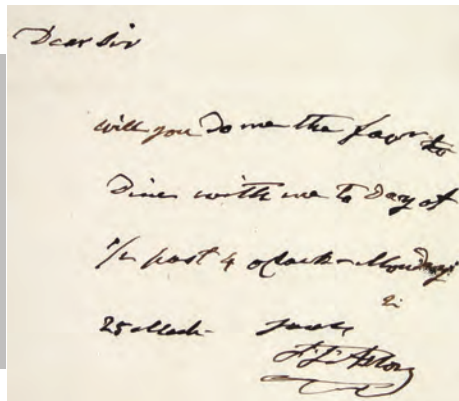 Dear Sir
will you do me the favor to
Dine with me to Day at
1/2 past 4 oclock - Monday
25 March - Yours
J J Astor